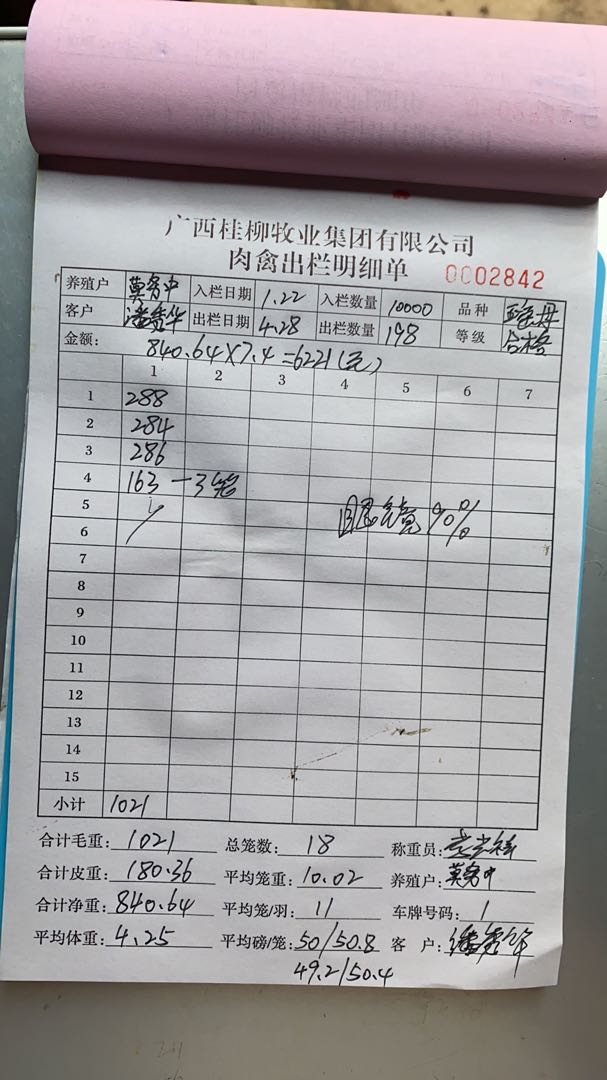 广西桂柳牧业集团有限公司
肉禽出栏明细单 0002842
养殖户 莫务中 入栏日期 1.22 入栏数量 10000 品种
客户 潘秀华 出栏日期 4.28 出栏数量 198 等级 合格
金额: 840.64×7.4=6221(元)
1 2 3 4 5 6 7
1 288
2 284
3 286
4 163 一3笼
5 眼镜90%
6
7
8
9
10
11
12
13
14
15
小计 1021
合计毛重: 1021 总笼数: 18 称重员:
合计皮重: 180.36 平均笼重: 10.02 养殖户: 莫务中
合计净重: 840.64 平均笼/羽: 11 车牌号码: 1
平均体重: 4.25 平均磅/笼: 50/50.8 客户: 潘秀华
49.2/50.4